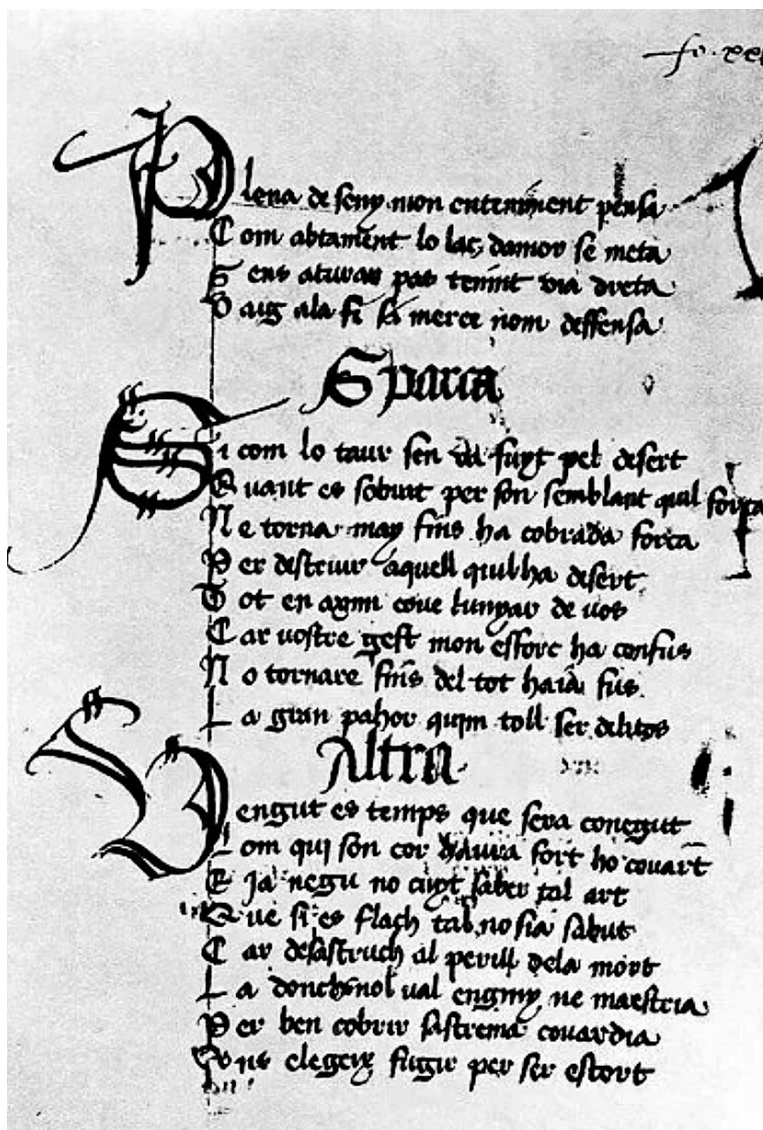 fo. xx
Plena de seny mon enteniment pensa
Com abtament lo laç damor se meta
Sens aturar pas tenint via dreta
Vaig ala fi si merce nom deffensa
Sparça
Si com lo taur sen va fuyt pel desert
Quant es sobrat per son semblant quil força
Ne torna may fins ha cobrada força
Per destruir aquell quil ha desert
Tot en axim cove lunyar de vos
Car vostre gest mon esforc ha confus
No tornare fins del tot haia fus
La gran pahor quim toll ser delitos
Altra
Vengut es temps que sera conegut
Lom qui son cor haura fort ho covart
E ja negu no cuyt saber tal art
Que si es flach tal no sia sabut
Car desastruch al perill dela mort
La donchs nol val enginy ne maestria
Per ben cobrir sastrema covardia
elegeix fugir per ser estort